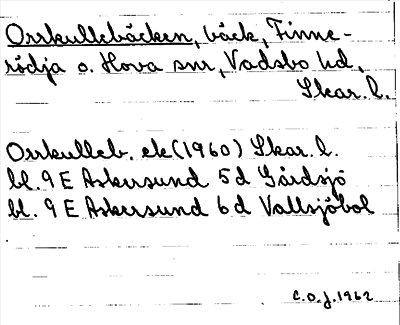 Orrkullebäcken, bäck, Finne-
rödja o. Hova snr, Vadsbo hd,
Skar. l.
Orrkulleb. ek (1960) Skar. l.
bl. 9 E Askersund 5 d Gårdsjö
bl. 9 E Askersund 6 d Vallsjöbol
C.O.J. 1962